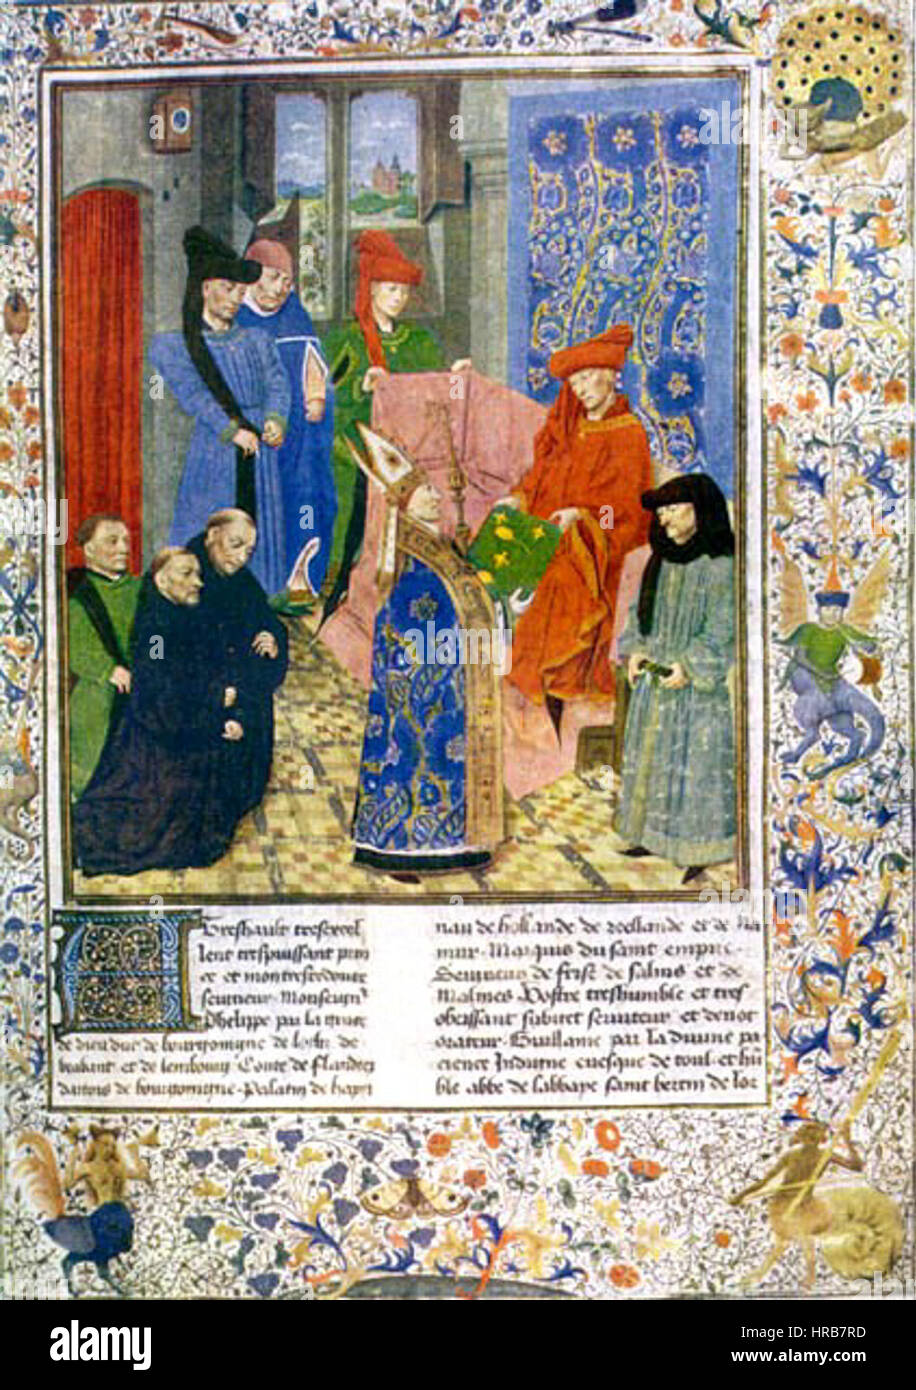 Treshault tresexcel
lent trespuissant prin
ce et mon tresredoubte
seigneur Monseigneur
Phelippe par la grace
de dieu duc de bourgoingne de lothr de
brabant et de lembourg Conte de flandres
dartois de bourgoingne Palatin de hayn
nau de hollande de zeellande et de Na
mur. Marquis du saint empire
Seigneur de frise de salins et de
Malines Vostre treshumble et tres
obeissant subget serviteur et devot
orateur. Guillame par la divine pa
cience Indigne evesque de toul et hu
ble abbe de labbaye saint bertin de
alamy stock photo
HRB7RD
www.alamy.com